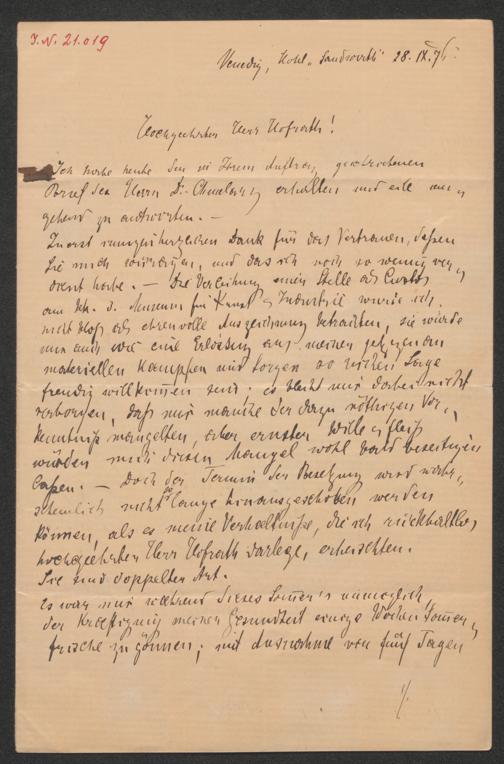 J.N. 21.019
Venedig, Hotel „Sandwirth" 28. IX. 76.
Hochgeehrter Herr Hofrath!
Ich habe heute den in Ihrem Auftrag geschriebenen
Brief des Herrn Dr. erhalten und eile um„
gehend zu antworten. –
Zuerst innigst herzlichen Dank für das Vertrauen, dessen
Sie mich und das ich noch so wenig ver„
dient habe. – Die Verleihung einer Stelle als Custos
am k. k. ö. Museum für Kunst & Industrie würde ich
nicht bloß als ehrenvolle Auszeichnung betrachten, sie würde
mir auch wie eine Erlösung aus meiner
materiellen Kämpfen und Sorgen so reichen Lage
freudig willkommen sein; es bleibt mir dabei nicht
verborgen, daß mir manche der dazu nöthigen Vor„
kenntniße mangelten, aber ernster Wille & Fleiß
würden mich diesen Mangel wohl bald beseitigen
lassen. – Doch der Termin der Besetzung wird wahr„
scheinlich nicht so lange hinausgeschoben werden
können, als es meine Verhältniße, die ich rückhaltlos
hochgeehrten Herr Hofrath darlege, erheischten.
Sie sind doppelter Art.
Es war mir während dieses Sommers unmöglich,
der Kräftigung meiner Gesundheit einige Wochen Sommer„
frische zu gönnen; mit Ausnahme von fünf Tagen
./.